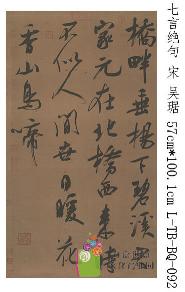 橋畔垂楊下碧溪君
家元在北橋西來時
不似人間世日暖花
香山鳥啼
七言绝句 宋 吴琚 57cm*100.1cm L-TB-BQ-092